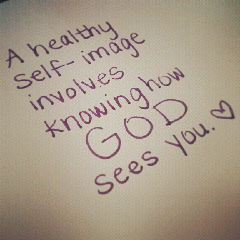 A healthy
Self-image
involves
knowing how
GOD
sees you.♡